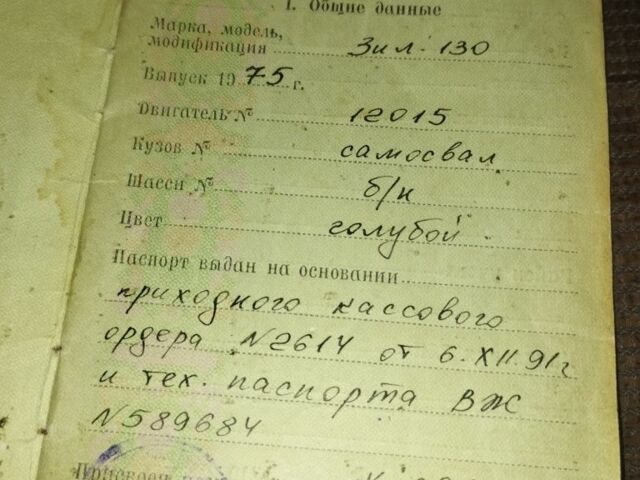 I. Общие данные
Марка, модель,
модификация Зил-130
Выпуск 1975 г.
Двигатель № 12015
Кузов № самосвал
Шасси № б/н
Цвет голубой
Паспорт выдан на основании
приходного кассового
ордера №2614 от 6.XII.91г
и тех. паспорта ВЖ
№589684